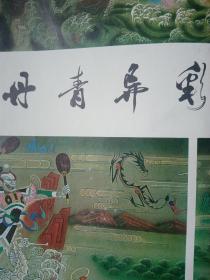 丹青异彩